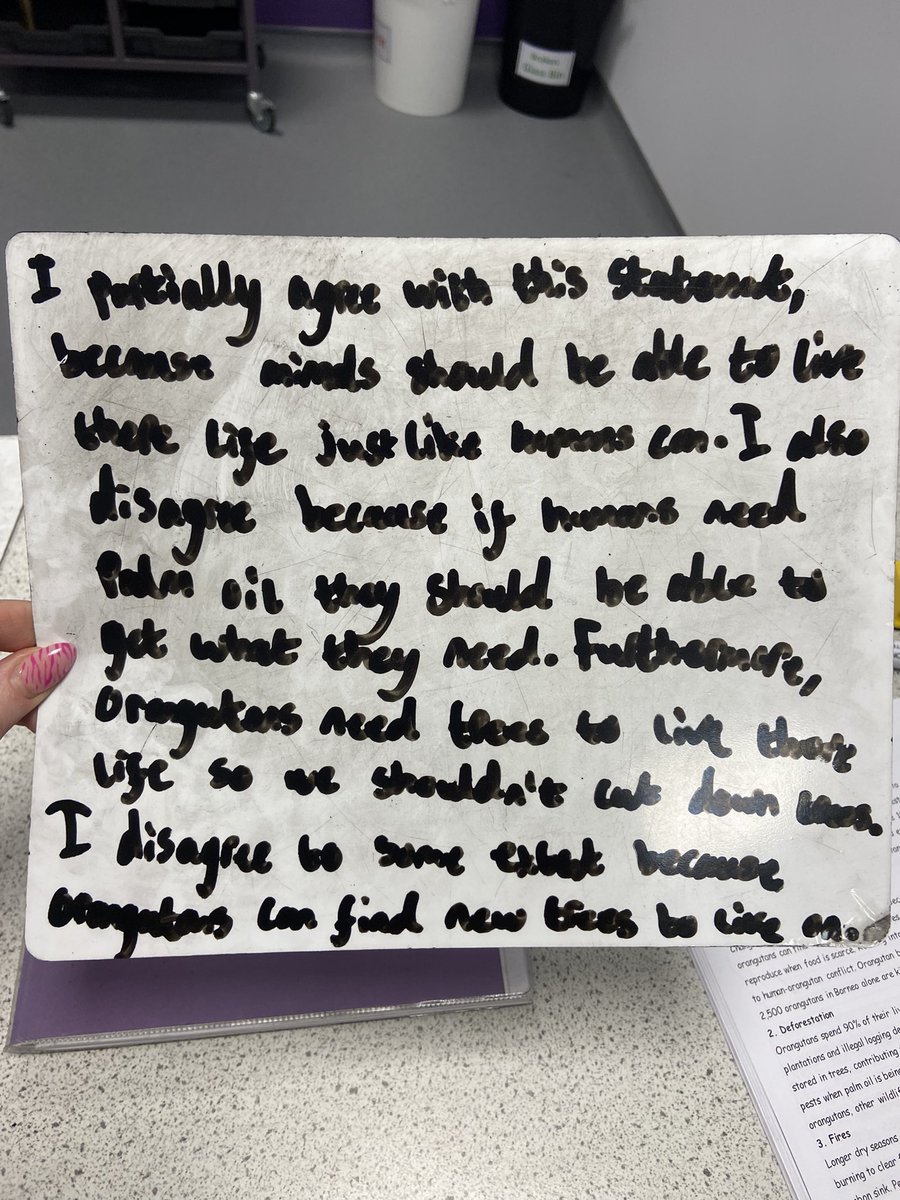 Broken
Glass Bin
I partially agree with this statement,
because should be able to live
there life just like humans can. I also
disagree because if humans need
Palm oil they should be able to
get what they need. Furthermore,
Orangutans need trees to live there
life so we shouldn't cut down trees.
I disagree to some extent because
Orangutans can find new trees to live on.
orangutans can
reproduce when food is scarce.
to human-orangutan conflict. Orangutan
2,500 orangutans in Borneo alone are
2. Deforestation
Orangutans spend 90% of their
plantations and illegal logging
stored in trees, contributing
pests when palm oil is being
orangutans, other
3. Fires
Longer dry seasons
burning to clear
sink.